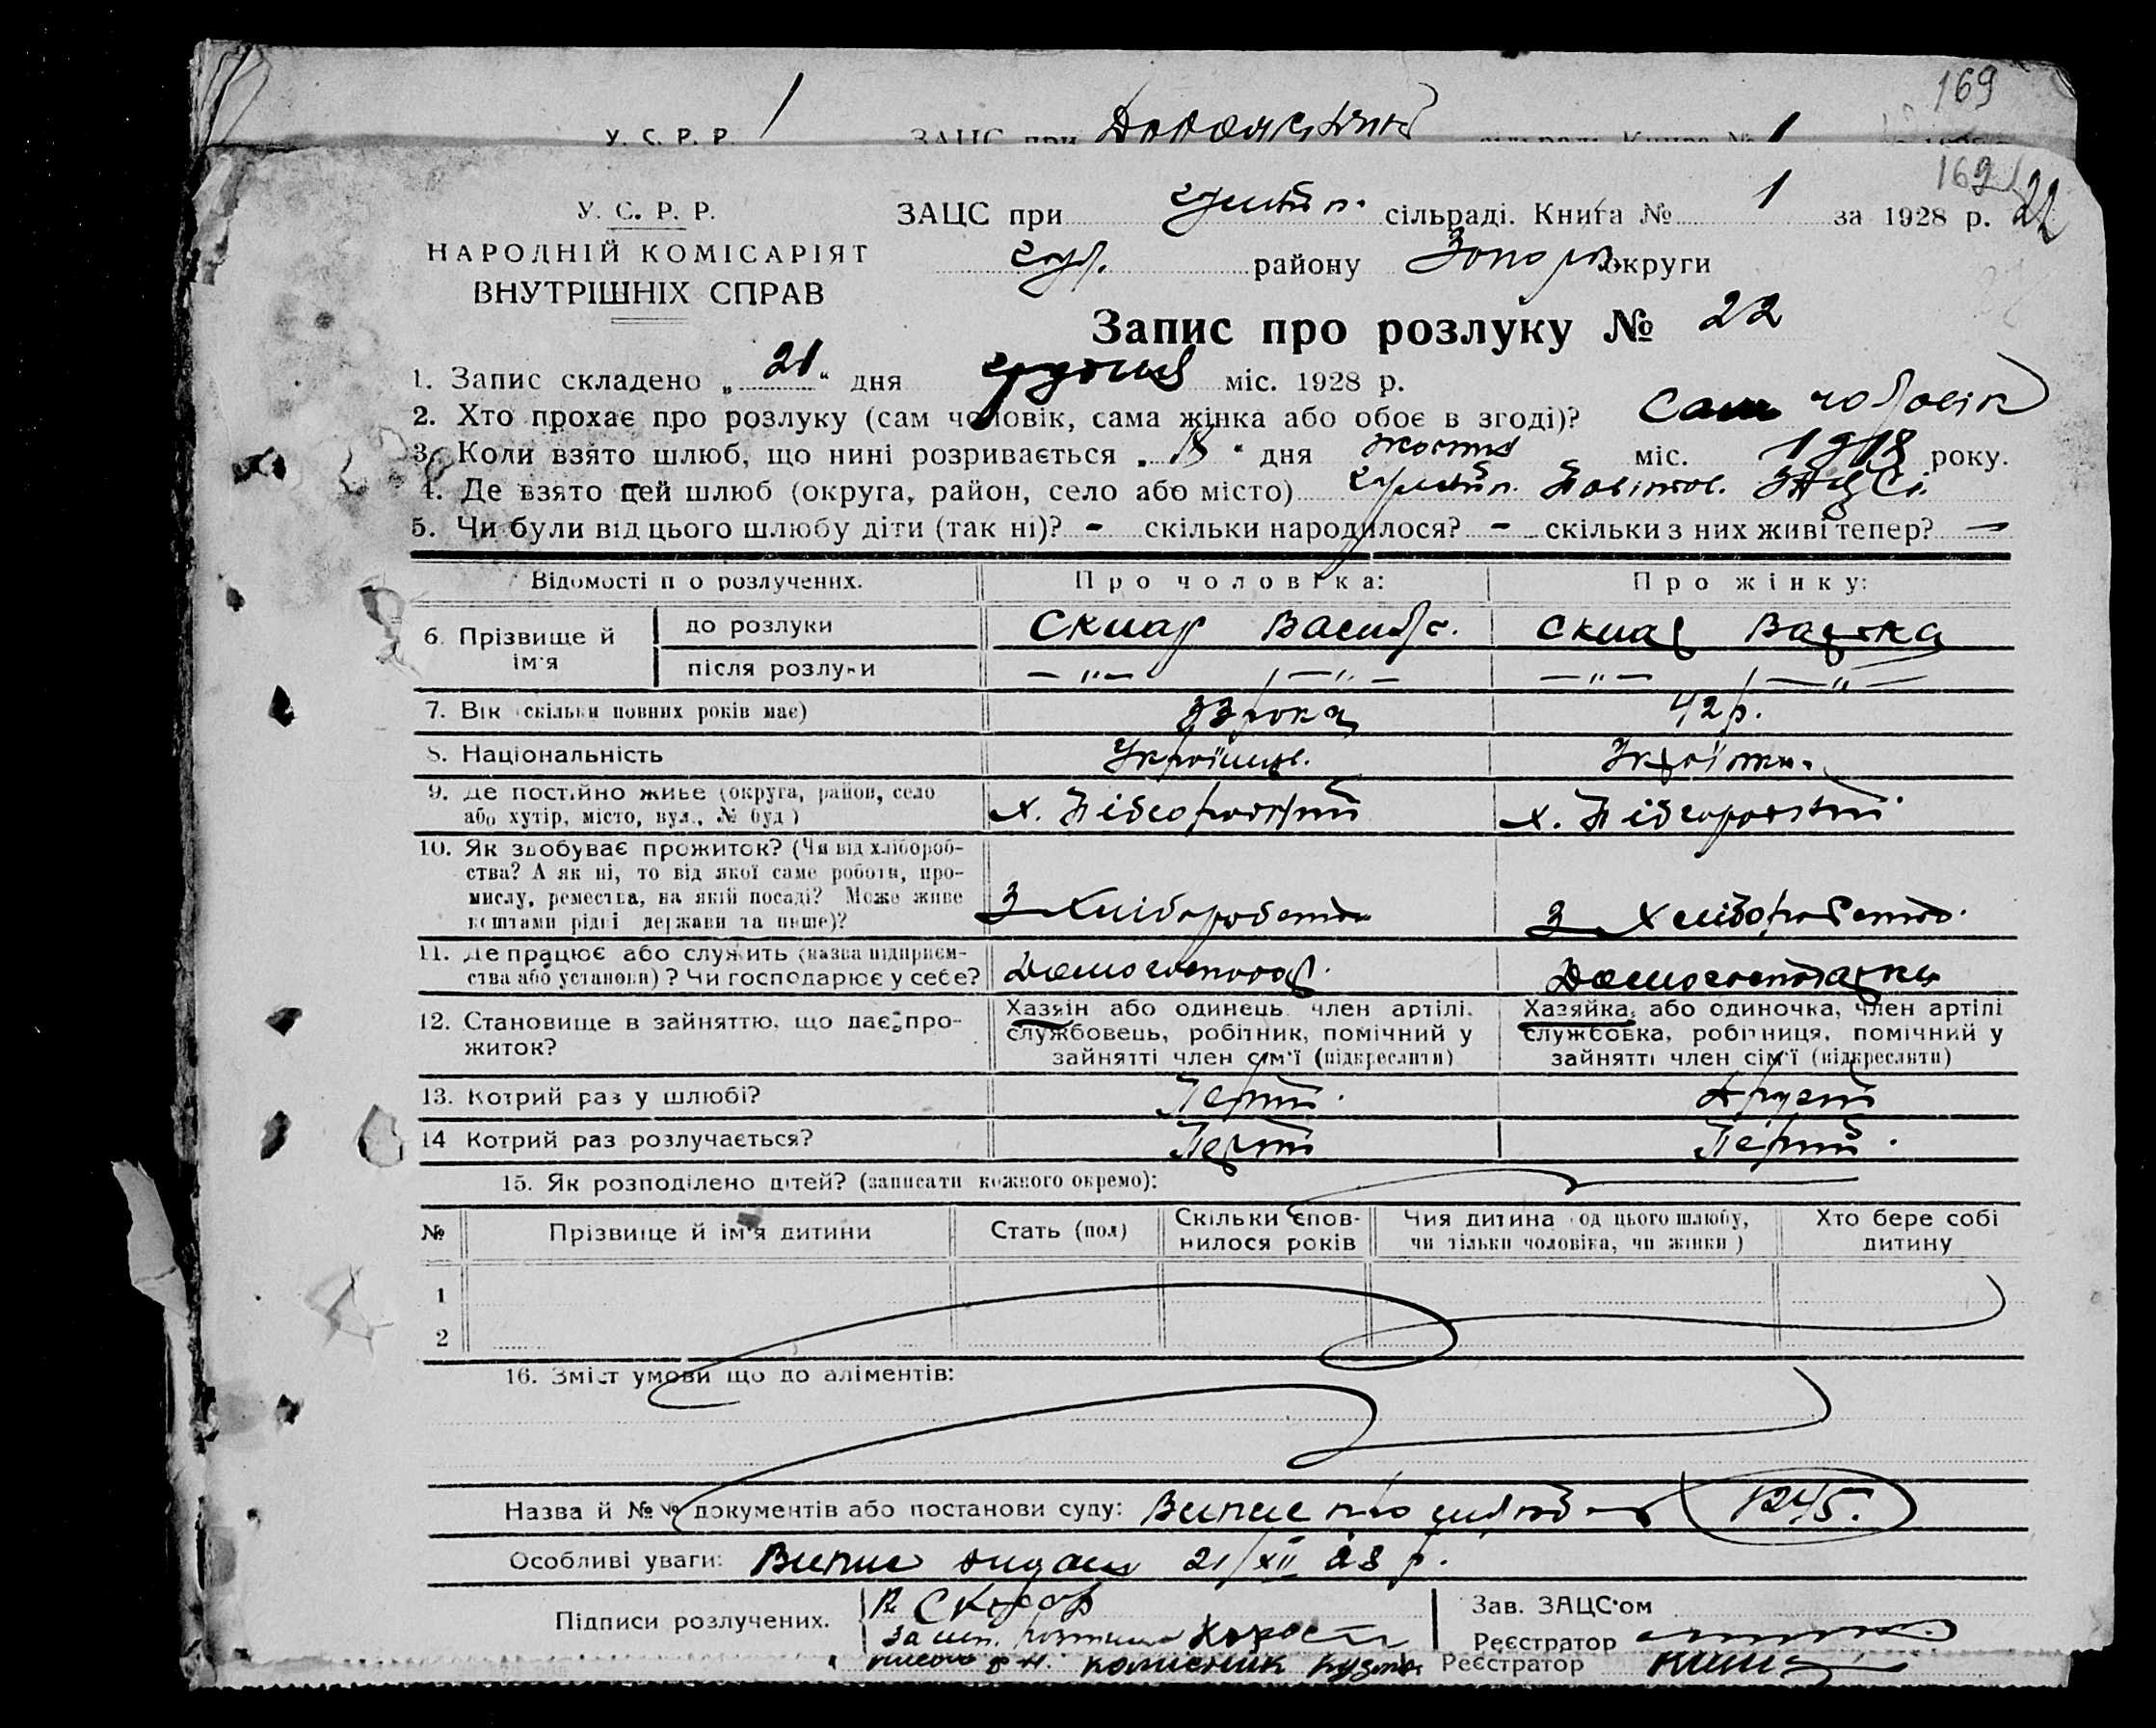 169
У. С. Р. Р. 1 ЗАЦС при сільраді Книга № 1
162 22
У. С. Р. Р.
НАРОДНІЙ КОМІСАРІЯТ
ВНУТРІШНІХ СПРАВ
ЗАЦС при сільраді. Книга № 1 за 1928 р.
району Запоріз. округи
Запис про розлуку № 22
1. Запис складено „ 21 “ дня грудня міс. 1928 р.
2. Хто прохає про розлуку (сам чоловік, сама жінка або обоє в згоді)? Сам чоловік
3. Коли взято шлюб, що нині розривається „ 18 “ дня жовтня міс. 1918 року.
4. Де взято цей шлюб (округа, район, село або місто)
5. Чи були від цього шлюбу діти (так ні)? - скільки народилося? - скільки з них живі тепер? -
Відомості п о розлучених. Про чоловіка: Про жінку:
6. Прізвище й ім'я
до розлуки Скляр Скляр
після розлуки — „ — — „ — — „ — — „ —
7. Вік (скільки повних років має) 33 рока 42 р.
8. Національність Українець. Українка
9. Де постійно живе (округа, район, село або хутір, місто, вул., № буд) х. Підгородній х. Підгородній
10. Як здобуває прожиток? (Чи від хлібороб-
ства? А як ні, то від якої саме роботи, про-
мислу, ремества, на якій посаді? Може живе
коштами рідні держави та инше)? З хліборобства З хліборобства
11. Де працює або служить (назва підприєм-
ства або установи)? Чи господарює у себе? Домогосподар. Домогосподарка
12. Становище в зайняттю, що дає про-
житок?
Хазяїн або одинець член артілі,
службовець, робітник, помічний у
зайнятті член сім'ї (підкреслити)
Хазяйка, або одиночка, член артілі
службовка, робітниця, помічний у
зайнятті член сім'ї (підкреслити)
13. Котрий раз у шлюбі? Перший. Другий
14 Котрий раз розлучається? Перший Перший.
15. Як розподілено дітей? (записати кожного окремо):
№ Прізвище й ім'я дитини Стать (пол) Скільки спов-нилося років Чия дитина (од цього шлюбу, чи тільки чоловіка, чи жінки) Хто бере собі дитину
1
2
16. Зміст умови що до аліментів:
Назва й №№ документів або постанови суду: Випис про шлюб 1245.
Особливі уваги: Випис видан 21/XII 28 р.
Підписи розлучених. Скляр
Зав. ЗАЦС'ом
Реєстратор
Реєстратор